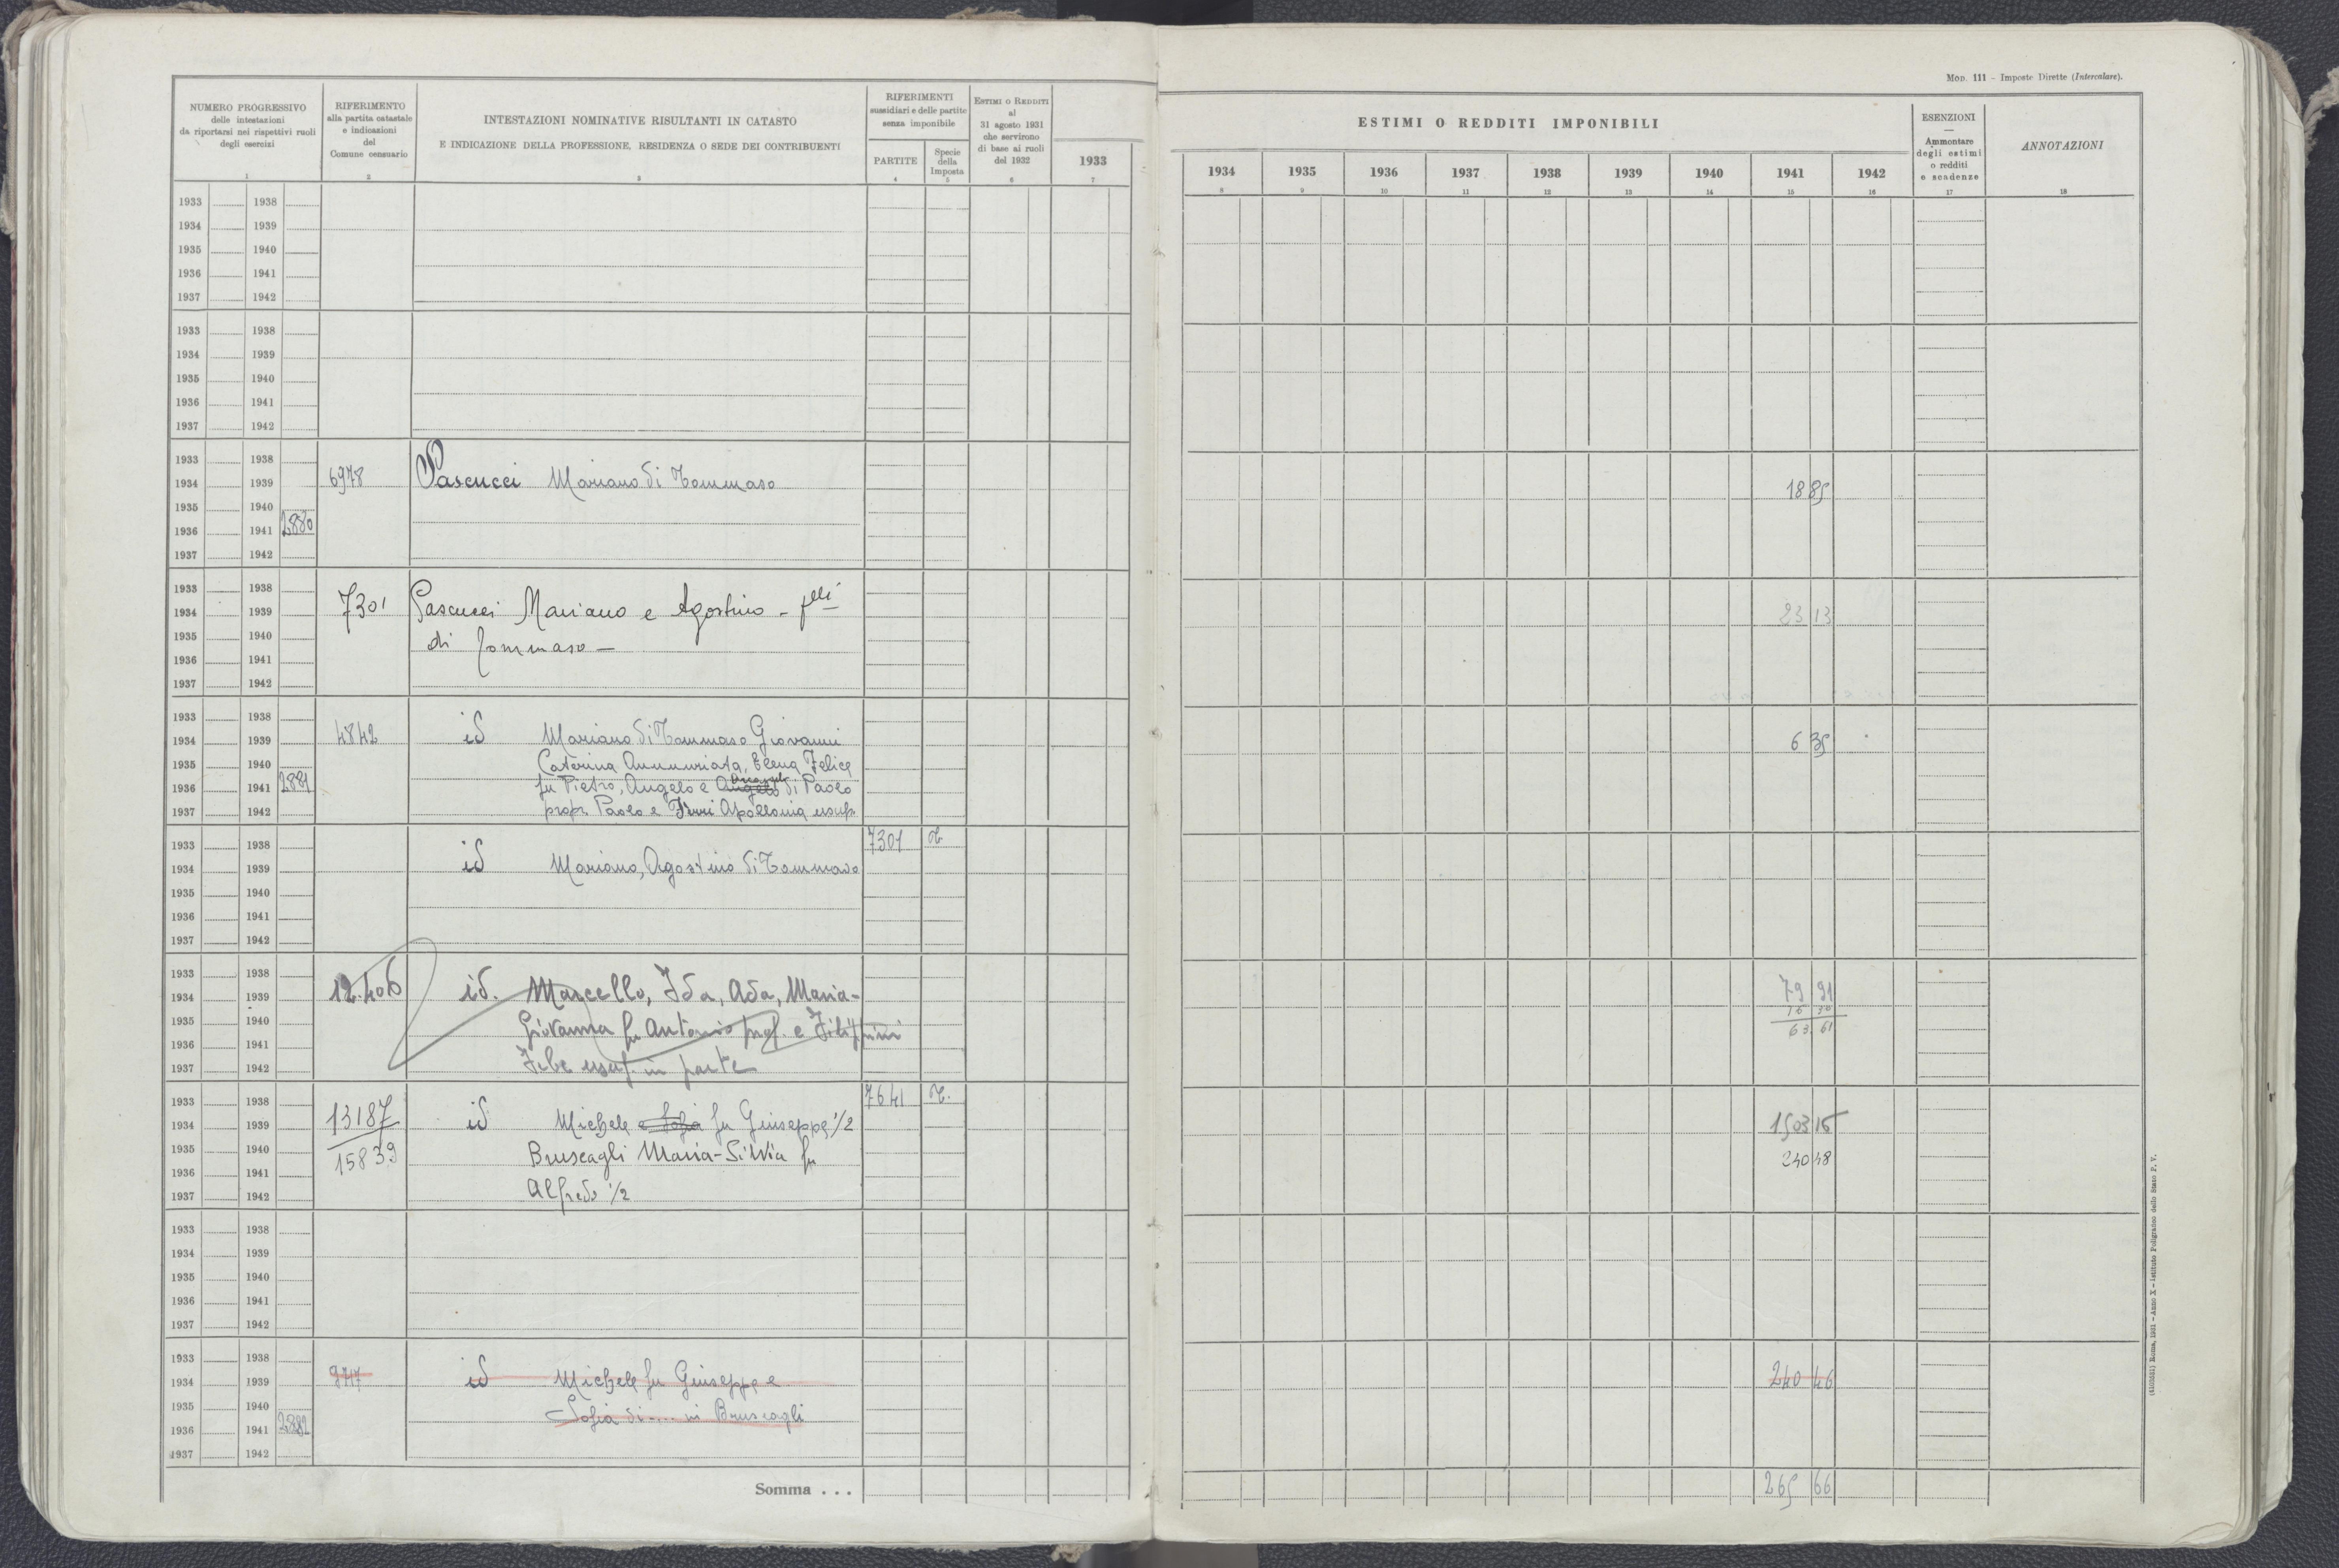 Mod. 111 – Imposte Dirette (Intercalare).
NUMERO PROGRESSIVO
delle intestazioni
da riportarsi nei rispettivi ruoli
degli esercizi
1
RIFERIMENTO
alla partita catastale
e indicazioni
del
Comune censuario
2
INTESTAZIONI NOMINATIVE RISULTANTI IN CATASTO
E INDICAZIONE DELLA PROFESSIONE, RESIDENZA O SEDE DEI CONTRIBUENTI
3
RIFERIMENTI
sussidiari e delle partite
senza imponibile
PARTITE
4
Specie
della
Imposta
5
ESTIMI O REDDITI
al
31 agosto 1931
che servirono
di base ai ruoli
del 1932
6
1933
7
ESTIMI O REDDITI IMPONIBILI
1934 1935 1936 1937 1938 1939 1940 1941 1942
8 9 10 11 12 13 14 15 16
ESENZIONI
—
Ammontare
degli estimi
o redditi
e scadenze
17
ANNOTAZIONI
18
1933 1938
1934 1939
1935 1940
1936 1941
1937 1942
1933 1938
1934 1939
1935 1940
1936 1941
1937 1942
1933 1938
1934 1939 6978 Pascucci Mariano di Tommaso 18 85
1935 1940
1936 1941 2880
1937 1942
1933 1938
1934 1939 7301 Pascucci Mariano e Agostino - flli 23 13
1935 1940 di Tommaso —
1936 1941
1937 1942
1933 1938
1934 1939 4842 id Mariano di Tommaso Giovanni 6 35
1935 1940 Caterina Annunziata, Elena Felice
1936 1941 2881 fu Pietro, Angelo e Angelo di Paolo
1937 1942 propr. Paolo e Ferri Apollonia usufr.
1933 1938 7301 T
1934 1939 id Mariano, Agostino di Tommaso
1935 1940
1936 1941
1937 1942
1933 1938
1934 1939 12.406 id. Marcello, Ida, Ada, Maria- 79 91
1935 1940 Giovanna fu Antonio prop. e Filippini 63 61
1936 1941
1937 1942 usuf. in parte
1933 1938 7641 T.
1934 1939 13187 id Michele e Sofia fu Giuseppe 1/2 1503 16
1935 1940 15839 Bruscagli Maria-Silvia fu 240 48
1936 1941
1937 1942 Alfredo 1/2
1933 1938
1934 1939
1935 1940
1936 1941
1937 1942
1933 1938
1934 1939 9747 id Michele fu Giuseppe e 240 46
1935 1940 Sofia di .... in Bruscagli
1936 1941 2882
1937 1942
Somma . . . 265 66
(4103551) Roma, 1931 – Anno X – Istituto Poligrafico dello Stato P. V.